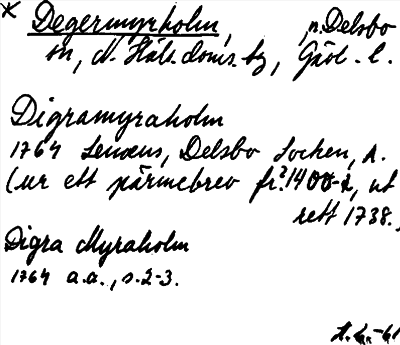 * Degermyrholm, n. Delsbo
sn, N. Häls. doms. hg, Gävl. l.
Digramyraholm
1764 Lenæus, Delsbo Socken, s.
(ur ett pärmebrev fr. 1400-t, ut
rett 1738.,
Digra Myraholm
1764 a.a., s. 2-3.